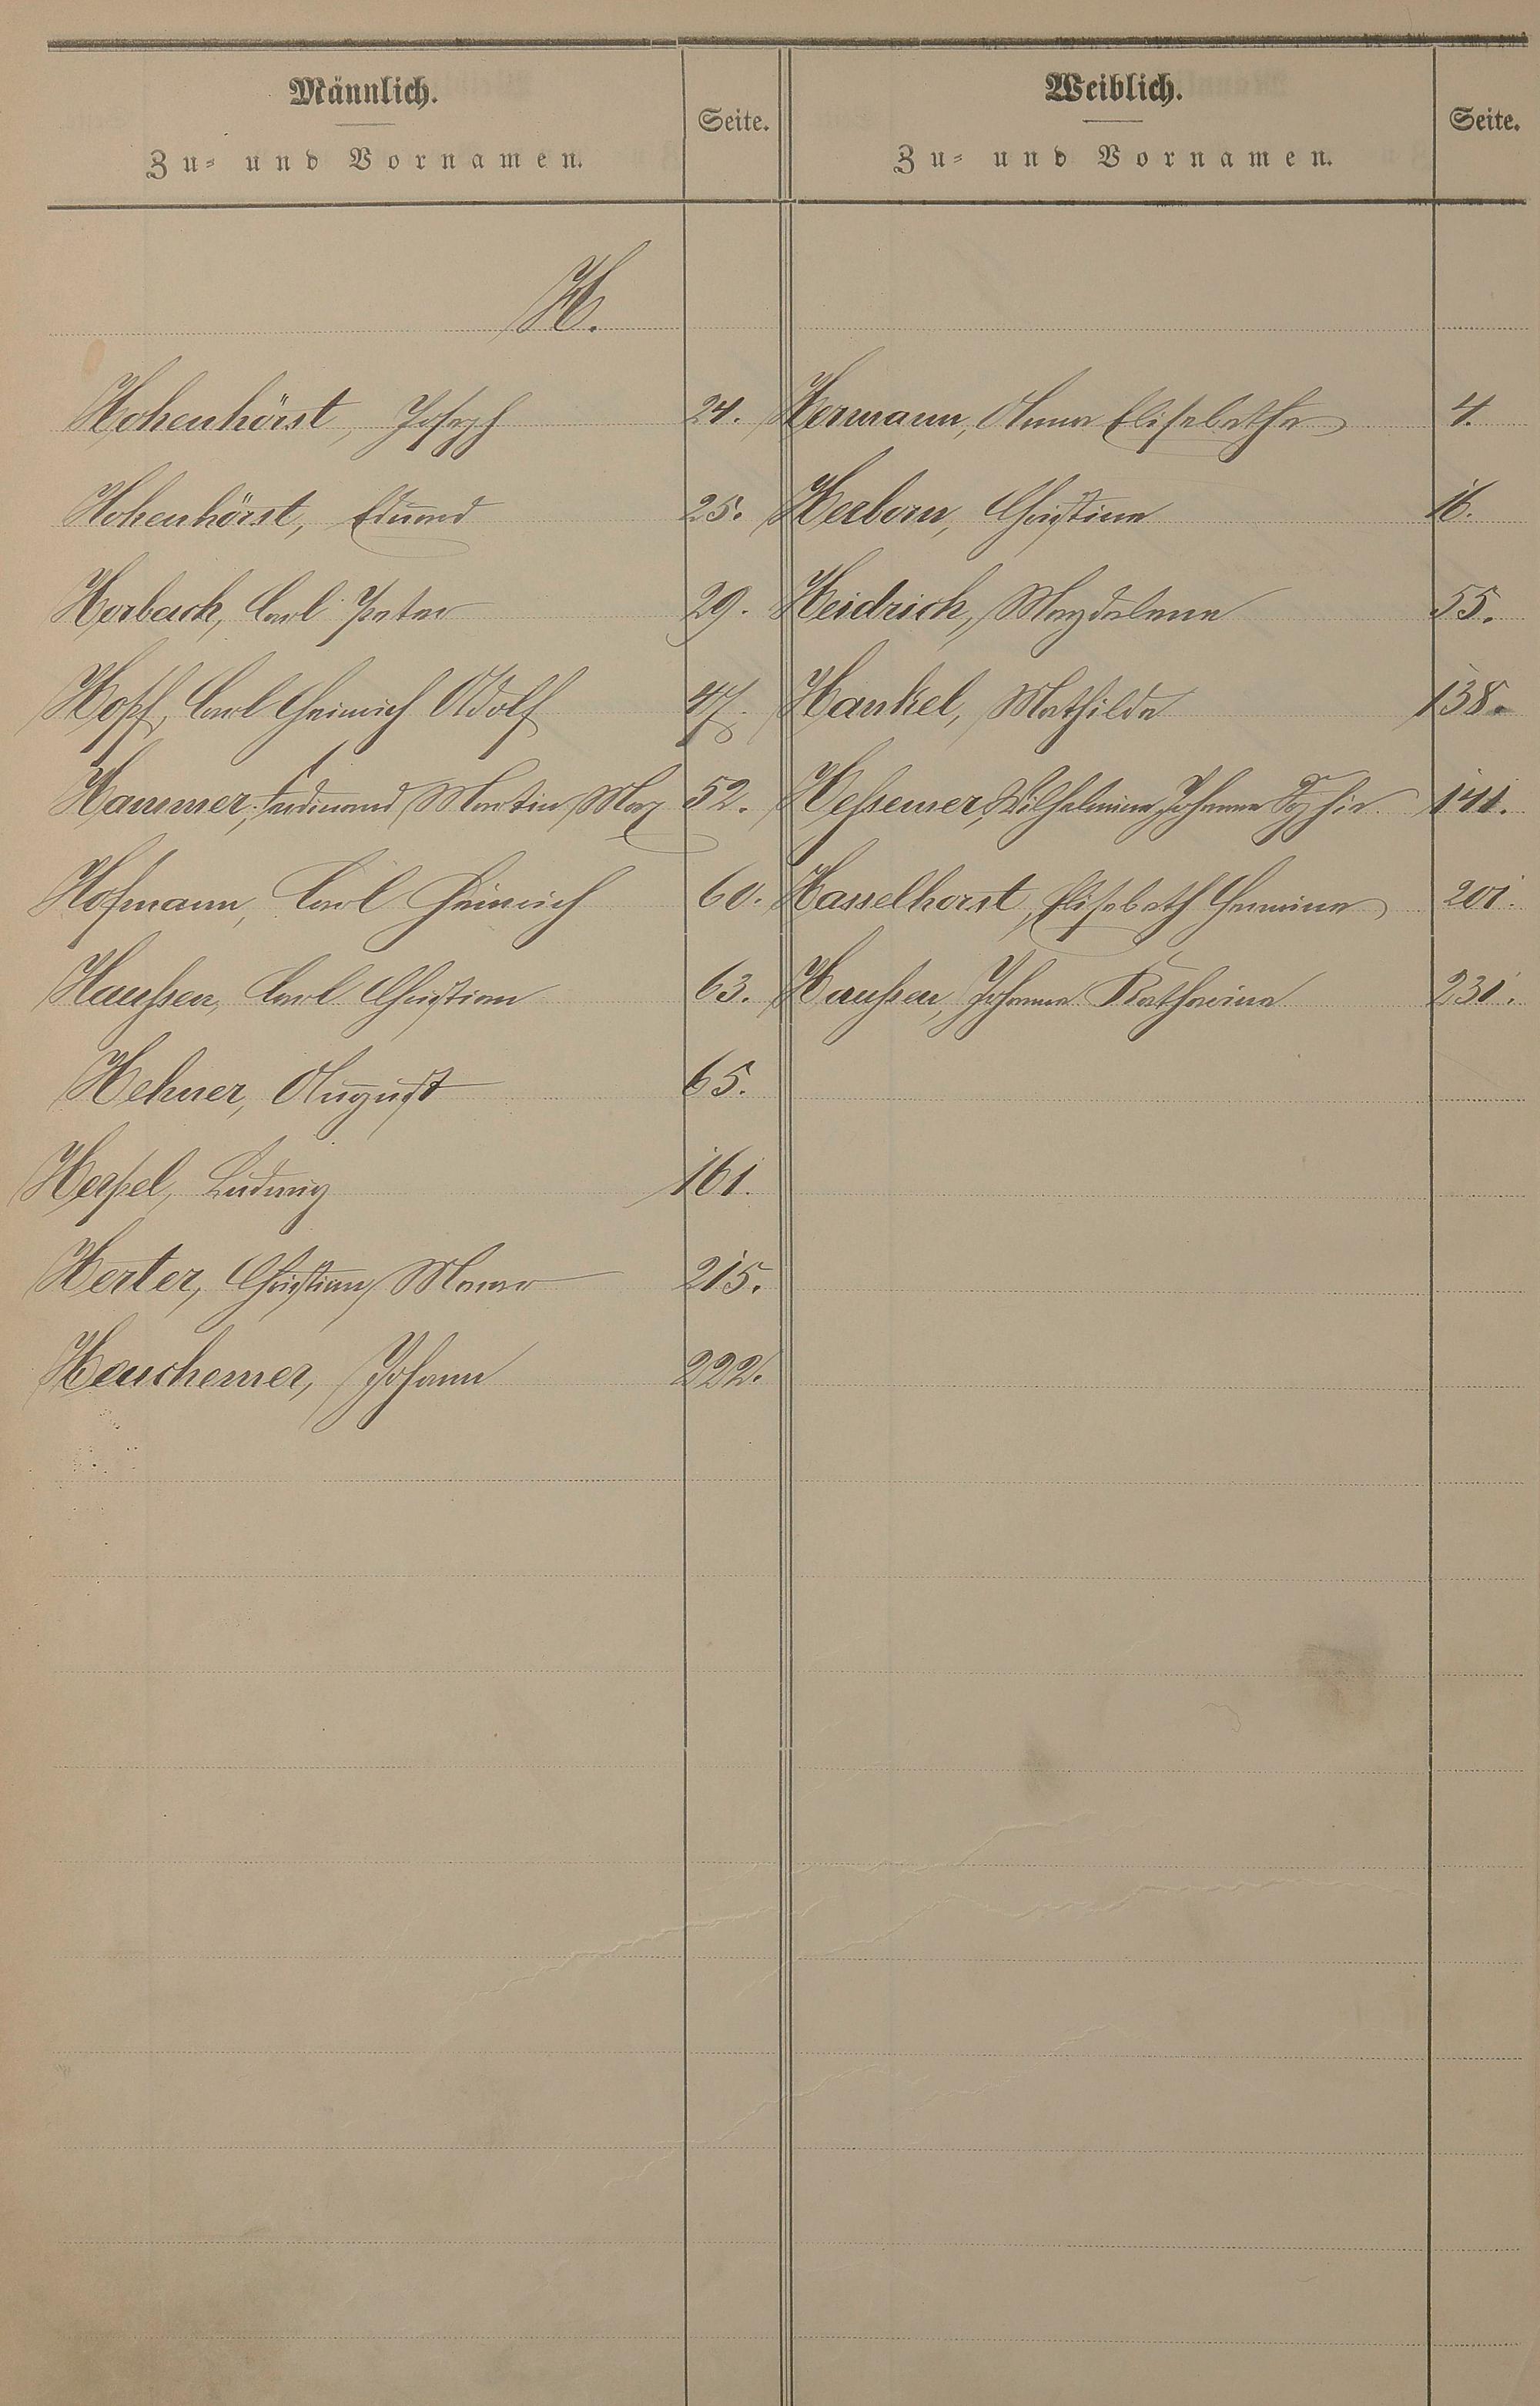 Männlich.
Zu- und Vornamen.
Seite.
Weiblich.
Zu- und Vornamen.
Seite.
H.
Hohenhörst, Joseph 24.
Hohenhörst, Eduard 25.
Horbach, Carl Peter 29.
Hopf, Carl Heinrich Adolf 47.
Hammer, Ferdinand Martin Max 52.
Hofmann, Carl Heinrich 60.
Haußen, Carl Christian 63.
Hehner, August 65.
Herpel, Ludwig 161.
Herter, Christian 215.
Heuchemer, Johann 222.
Hermann, Anna Elisabetha 4.
Herborn, Christina 16.
Heidrich, Magdalena 55.
Hankel, Mathilde 138.
Heßemer, Wilhelmine Johanna Sophie 141.
Hasselhorst, Elisabeth Hermine 201.
Haußen, Johanna Katharina 231.